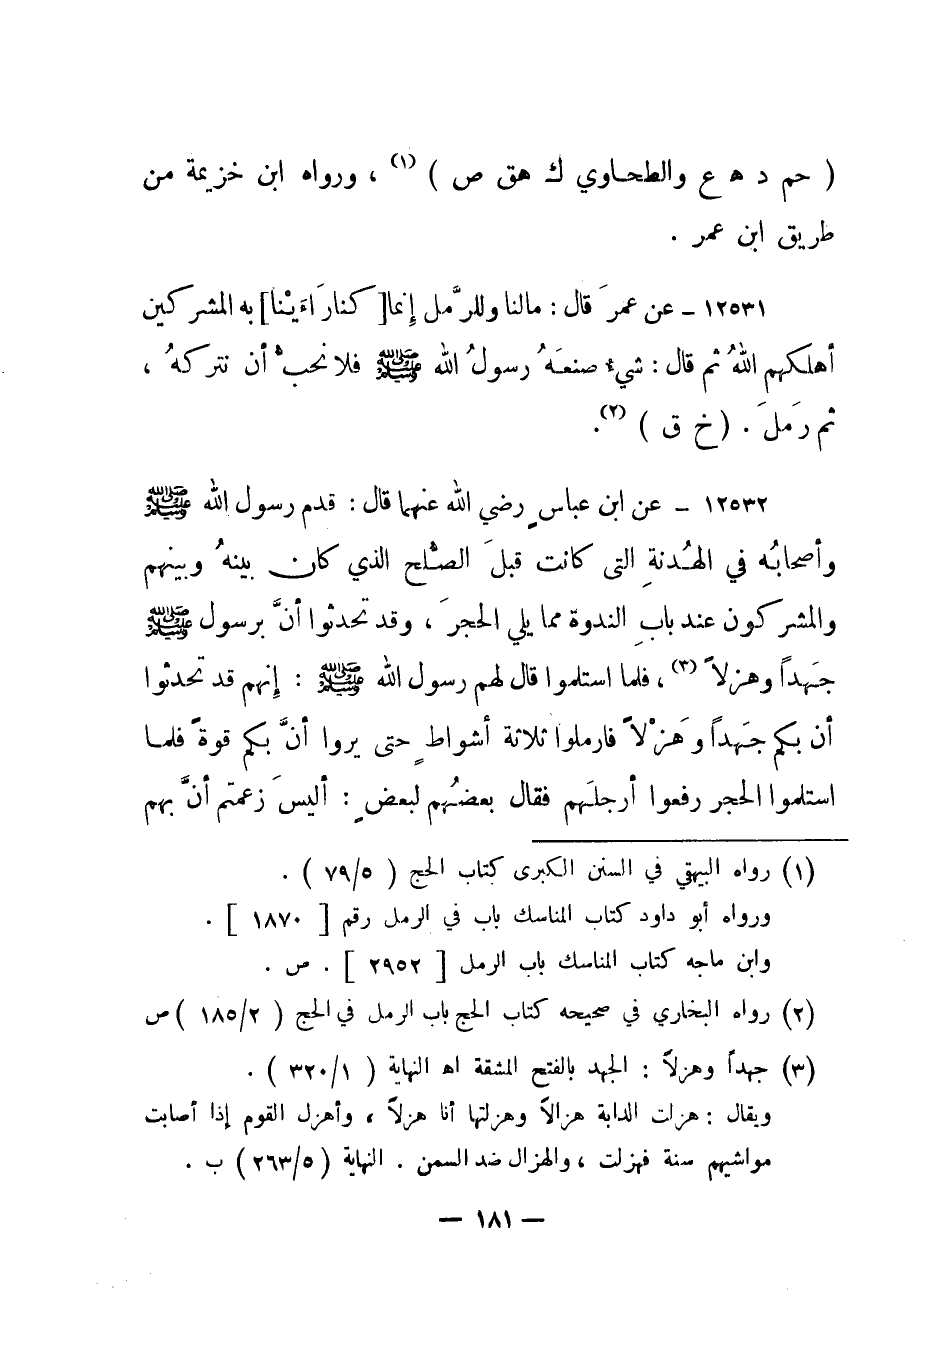 ( حم د ه ع والطحاوي ك هق ص ) (١) ، ورواه ابن خزيمة من
طريق ابن عمر .
١٢٥٣١ - عن عمرَ قال : مالنا وللرَّمل إنما[كنا رَاءَيْنا] به المشركين
أهلكهم اللهُ ثم قال : شيء صنعَهُ رسولُ الله ﷺ فلا نحبُّ أن نتركهُ ،
ثم رَملَ . (خ ق ) (٢).
١٢٥٣٢ - عن ابن عباسٍ رضي الله عنهما قال : قدم رسول الله ﷺ
وأصحابُه في الهُدنةِ التى كانت قبلَ الصُّلح الذي كان بينهُ وبينهم
والمشركون عند بابِ الندوة مما يلي الحجرَ ، وقد تحدثوا أنَّ برسول ﷺ
جَهداً وهزلاً (٣) ، فلما استلموا قال لهم رسول الله ﷺ : إنهم قد تحدثوا
أن بكم جَهداً وَهَزْلاً فارملوا ثلاثة أشواطٍ حتى يروا أنَّ بكم قوةً فلمـا
استلموا الحجر رفعوا أرجلَهم فقال بعضُهم لبعضٍ : أليسَ زعمتم أنَّ بهم
(١) رواه البيهقي في السنن الكبرى كتاب الحج ( ٧٩/٥ ) .
ورواه أبو داود كتاب المناسك باب في الرمل رقم [ ١٨٧٠ ] .
وابن ماجه كتاب المناسك باب الرمل [ ٢٩٥٢ ] . ص .
(٢) رواه البخاري في صحيحه كتاب الحج باب الرمل في الحج ( ١٨٥/٢ ) ص
(٣) جهداً وهزلاً : الجهد بالفتح المشقة اه النهاية ( ٣٢٠/١ ) .
ويقال : هزلت الدابة هزالاً وهزلتها أنا هزلاً ، وأهزل القوم إذا أصابت
مواشيهم سنة فهزلت ، والهزال ضد السمن . النهاية ( ٢٦٣/٥ ) ب .
— ١٨١ —